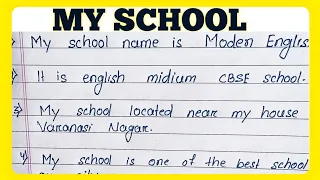 MY SCHOOL
My school name is Moden Englis
2) It is english midium CBSE school.
3) My school located near my house
Varanasi Nagar.
4) My school is one of the best school